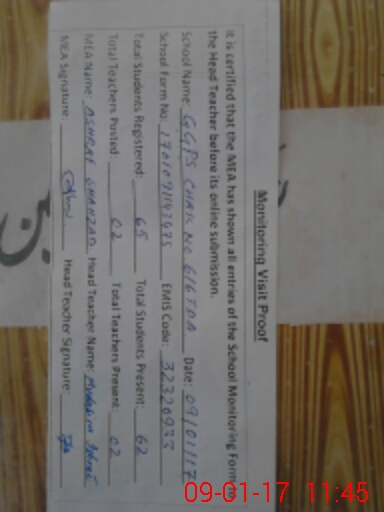 Monitoring Visit Proof
It is certified that the MEA has shown all entries of the School Monitoring Form to
the Head Teacher before its online submission.
School Name: GGPS CHAK NO 616TDA Date: 09/01/17
School Form No: EMIS Code: 32320935
Total Students Registered: 65 Total Students Present: 62
Total Teachers Posted 02 Total Teachers Present: 02
MEA Name: SHAHZAD Head Teacher Name:
MEA Signature: Head Teacher Signature:
09-01-17 11:45